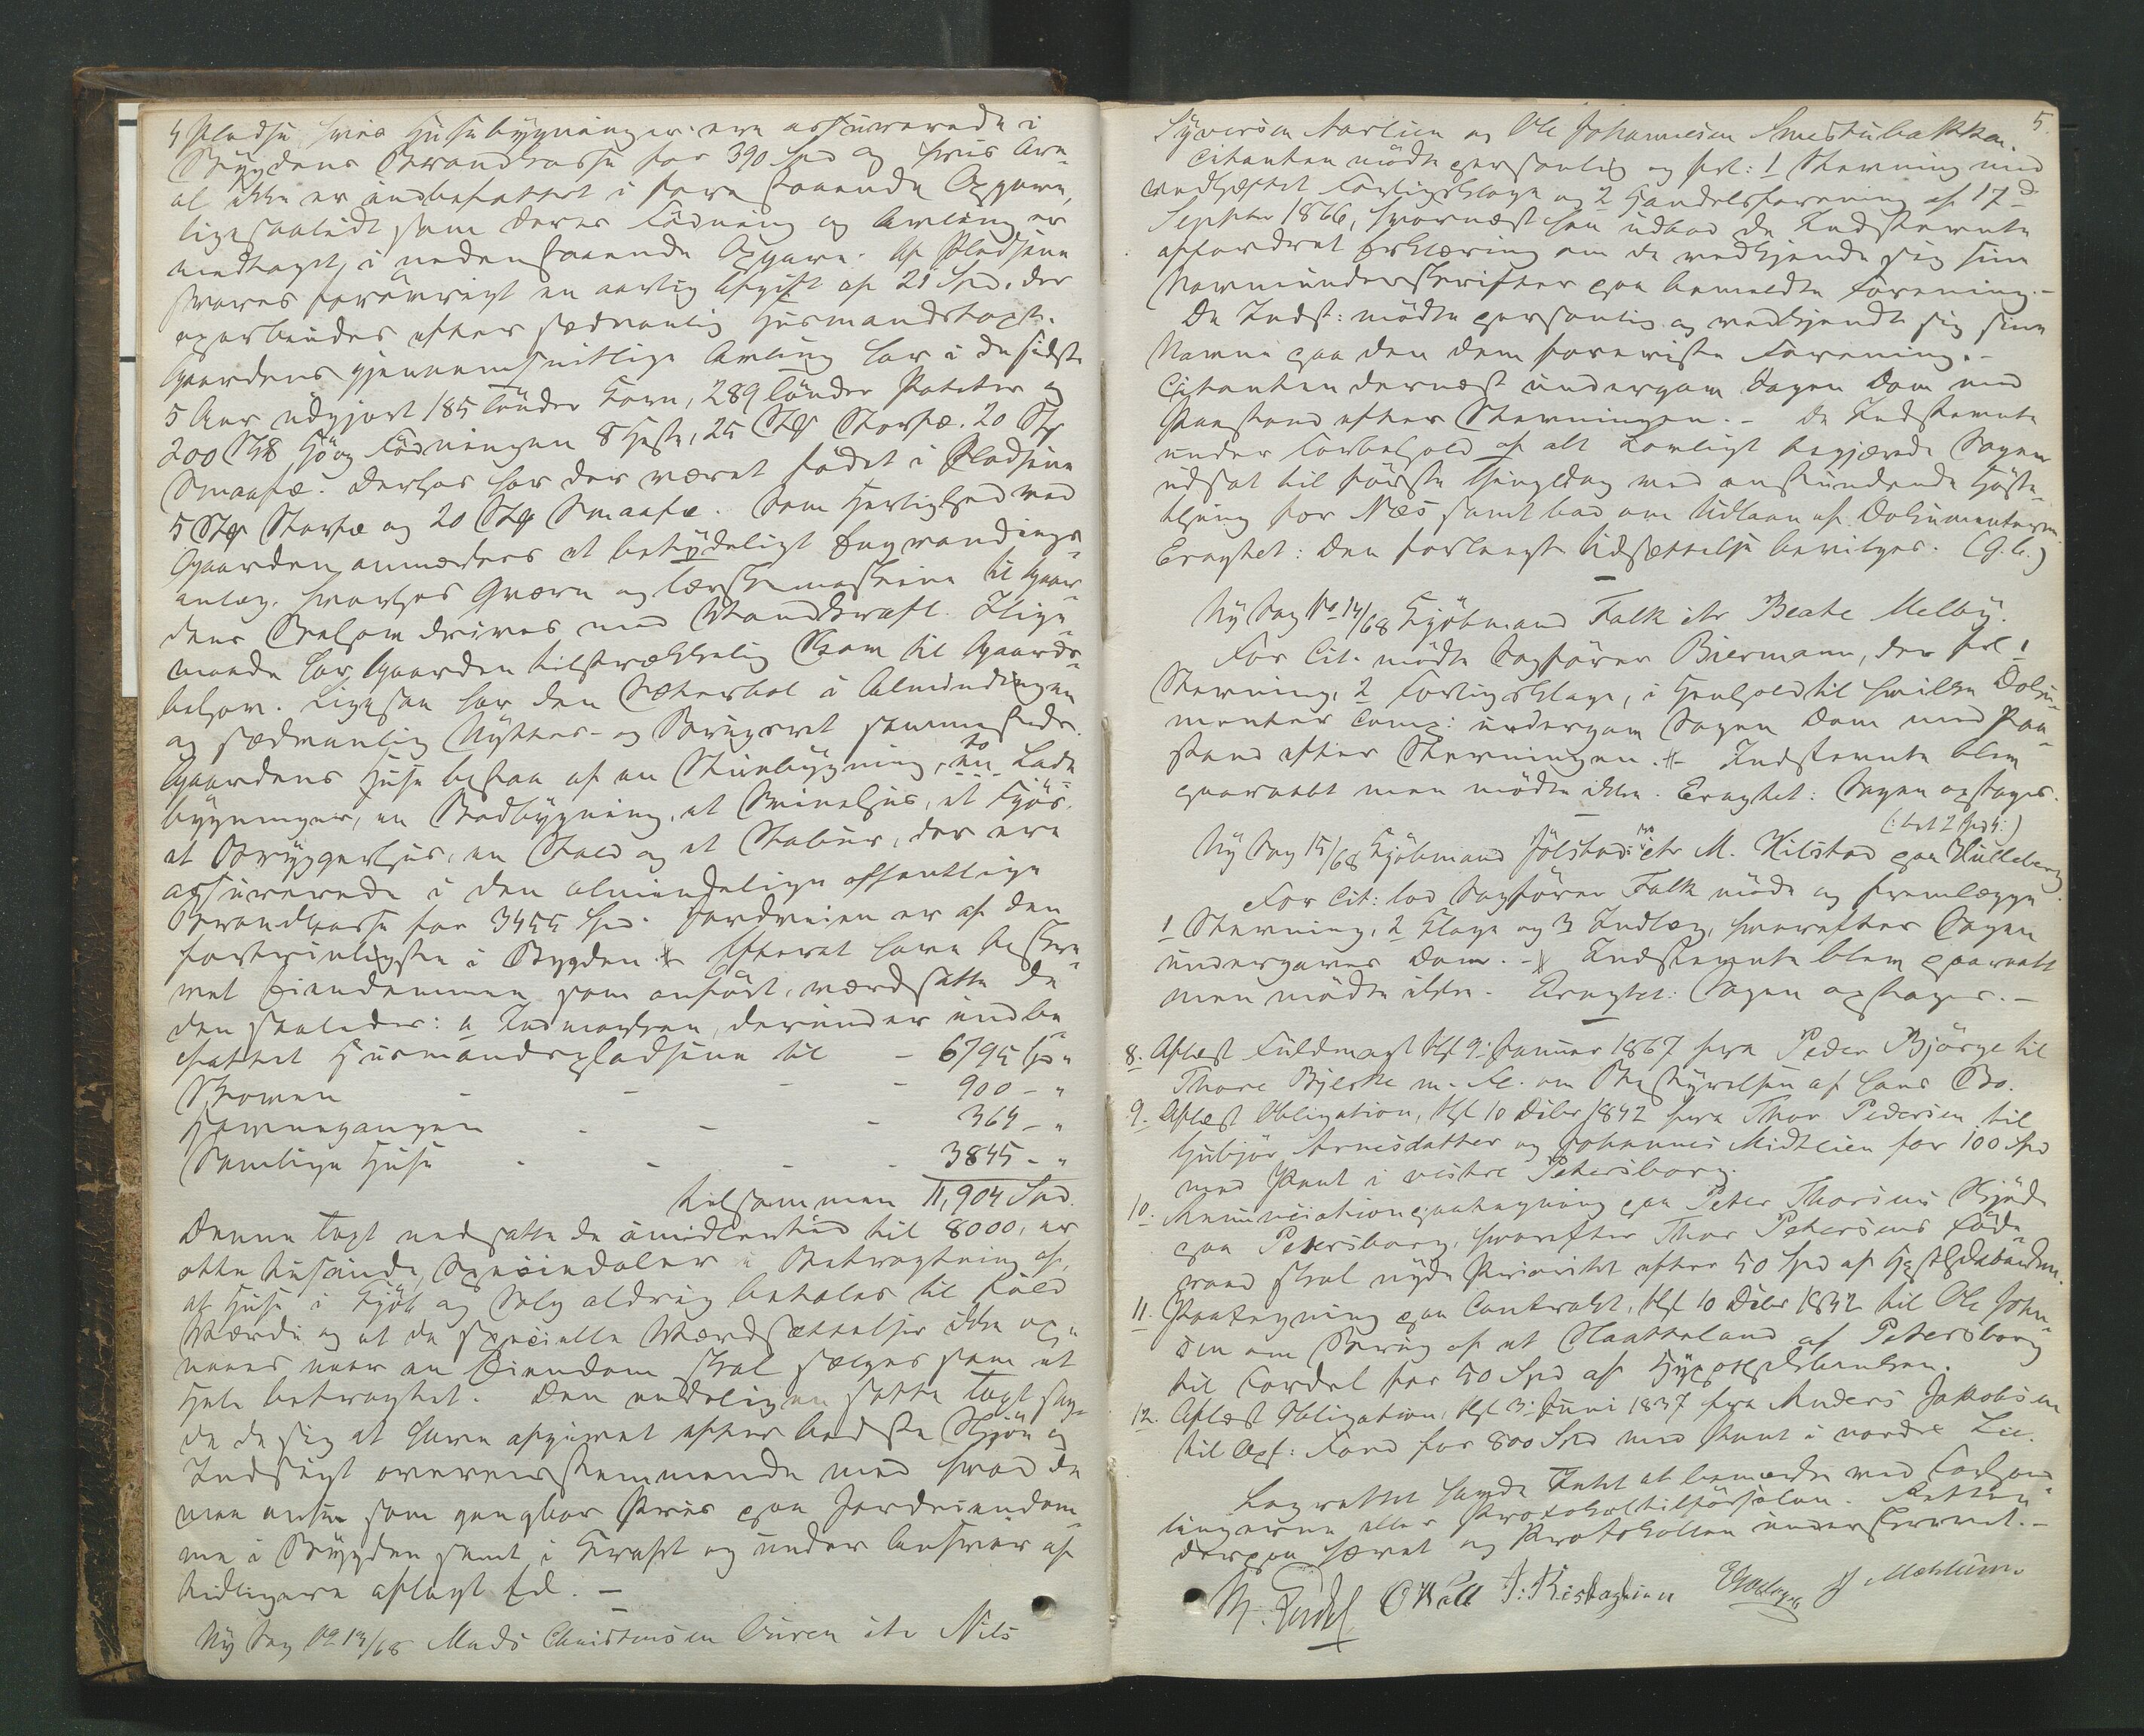 4 Pladse hvis Husebygninger ere assurerede i
Bygdens Brandkasse for 390 Spd og hvis Are¬
al ikke er indbefattet i foranstaaende Opgave,
ligesaalidt som deres Födning og Avling er
medtaget i nedenstaaende Opgave. Af Pladsene
svares forövrigt en aarlig Afgift af 21 Spd. der
oparbeides efter sædvanlig Husmandstaxt.
Gaardens gjennemsnitlige Avling har i de sidste
5 Aar udgjort 185 Tönder Korn, 289 Tönder Poteter og
200 Hö og Födningen 8 Heste, 25 Stk Storfæ. 20 Stk
Smaafæ. Derhos har der været födet i Pladsene
5 Stk Storfæ og 20 Stk Smaafæ. Som Herlighed ved
Gaarden anmærkes et betydeligt Engvandings¬
anlæg, hvorhos Qværn og Tærskemaskine til Gaar¬
dens Behov drives med Vandkraft. Ilige¬
maade har Gaarden tilstrækkelig Skov til Gaards¬
behov. Ligesaa har den Sæterbol i Almindingen
og sædvanlig Nyttes- og Brugsret sammesteds.
Gaardens Huse bestaa af en Stuebygning, to Lade
bygninger, en Bodbygning, et Svinehus, et Fjös,
et Bryggerhus, en Stald og et Stabur, der ere
assurerede i den almindelige offentlige
Brandkasse for 3455 Spd. Jordveien er af den
fortrinligste i Bygden. Efterat have beskre¬
vet Eiendommen som anfört, værdsatte de
den saaledes: a Indmarken, derunder indbe
fattet Husmandspladsene til - 6795 Spd "
Skoven - - - - 900 - "
Havnegangen - - - 364 - "
Samtlige Huse - - - - 3845 - "
tilsammen 11,904 Spd.
Denne Taxt nedsatte de imidlertid til 8000, er
otte tusinde Speciedaler i Betragtning af,
at Huse i Kjöb og Salg aldrig betales til fuld
Værdi og at de specielle Værdsættelser ikke op¬
naaes naar en Eiendom skal sælges som et
Hele betragtet. Den endeligen satte Taxt sag¬
de de sig at have afgivet efter bedste Skjön og
Indsigt overensstemmende med hvad de
maa ansee som gangbar Pris paa Jordeiendom¬
me i Bygden samt i Kraft og under Ansvar af
tidligere aflagt Ed. —
Ny Sag No 13/68 Mads Christensen Buren ctr Nils
5.
Syversen Aarlien og Ole Johannesen Smestubakken.
Citanten mödte personlig og frl: 1 Stevning med
vedhæftet Forligsklage og 2 Handelsforening af 17 d
Septbr 1866, hvornæst han udbad de Indstevnte
affordret Erklæring om de vedkjende sig sine
Navneunderskrifter paa bemeldte Forening. -
De Indst: mödte personlig og vedkjendte sig sine
Navne paa den dem foreviste Forening. -
Citanten dernæst indergav Sagen Dom med
Paastand efter Stevningen. - De Indstevnte
under Forbehold af alt Lovligt begjærede Sagen
udsat til förste Thingdag ved anstundende Höste
thing for Næs samt bad om Udlaan af Dokumenterne.
Eragtet: Den forlangte Udsættelse bevilges. (G. C.)
Ny Sag No 14/68 Kjöbmand Falk ctr Beate Melby.
For Cit. mödte Sagförer Biermann, der frl 1
Stevning, 2 Forligsklage, i Henhold til hvilke Doku¬
menter Comp: indergav Sagen Dom med Paa¬
stand efter Stevningen. - Indstevnte blev
paaraabt men mödte ikke. Eragtet: Sagen optages.
Ny Sag 15/68 Kjöbmand Jölstad ctr M. Kilstad paa Hulleberg
For Cit: lod Sagförer Falk möde og fremlægge
1 Stevning, 2 Klage og 3 Indlæg, hvorefter Sagen
indergaves Dom. - Indstevnte blev paaraabt
men mödte ikke. Eragtet: Sagen optages. -
8. Aflæst Fuldmagt dat 9. Januar 1867 fra Peder Björge til
Thore Bjerke m. Fl. om Bestyrelsen af hans Bo.
9. Aflæst Obligation, dat 10 Debr 1842 fra Thor Pedersen til
Gubjör Arnesdatter og Johannes Midtlien for 100 Spd
med Pant i vestre Petersborg.
10. Renunciationspaategning paa Peter Thorsens Skjöde
paa Petersborg, hvorefter Thor Petersens Föde¬
raad skal nyde Prioritet efter 50 Spd af Hypothekbanken.
11. Paategning paa Contrakt, dat 10 Debr 1842 til Ole John¬
sen om Brug af et Slaatteland af Petersborg
til Fordel for 50 Spd af Hypothekbanken.
12. Aflæst Obligation, dat 3. Juni 1837 fra Anders Jakobsen
til Opf: Fond for 800 Spd med Pant i nordre Lie.
Lagrettet havde Intet at bemærke ved Forhand¬
lingerne eller Protokoltilförselen. Retten
derpaa hævet og Protokollen underskrevet. -
Mæhlum